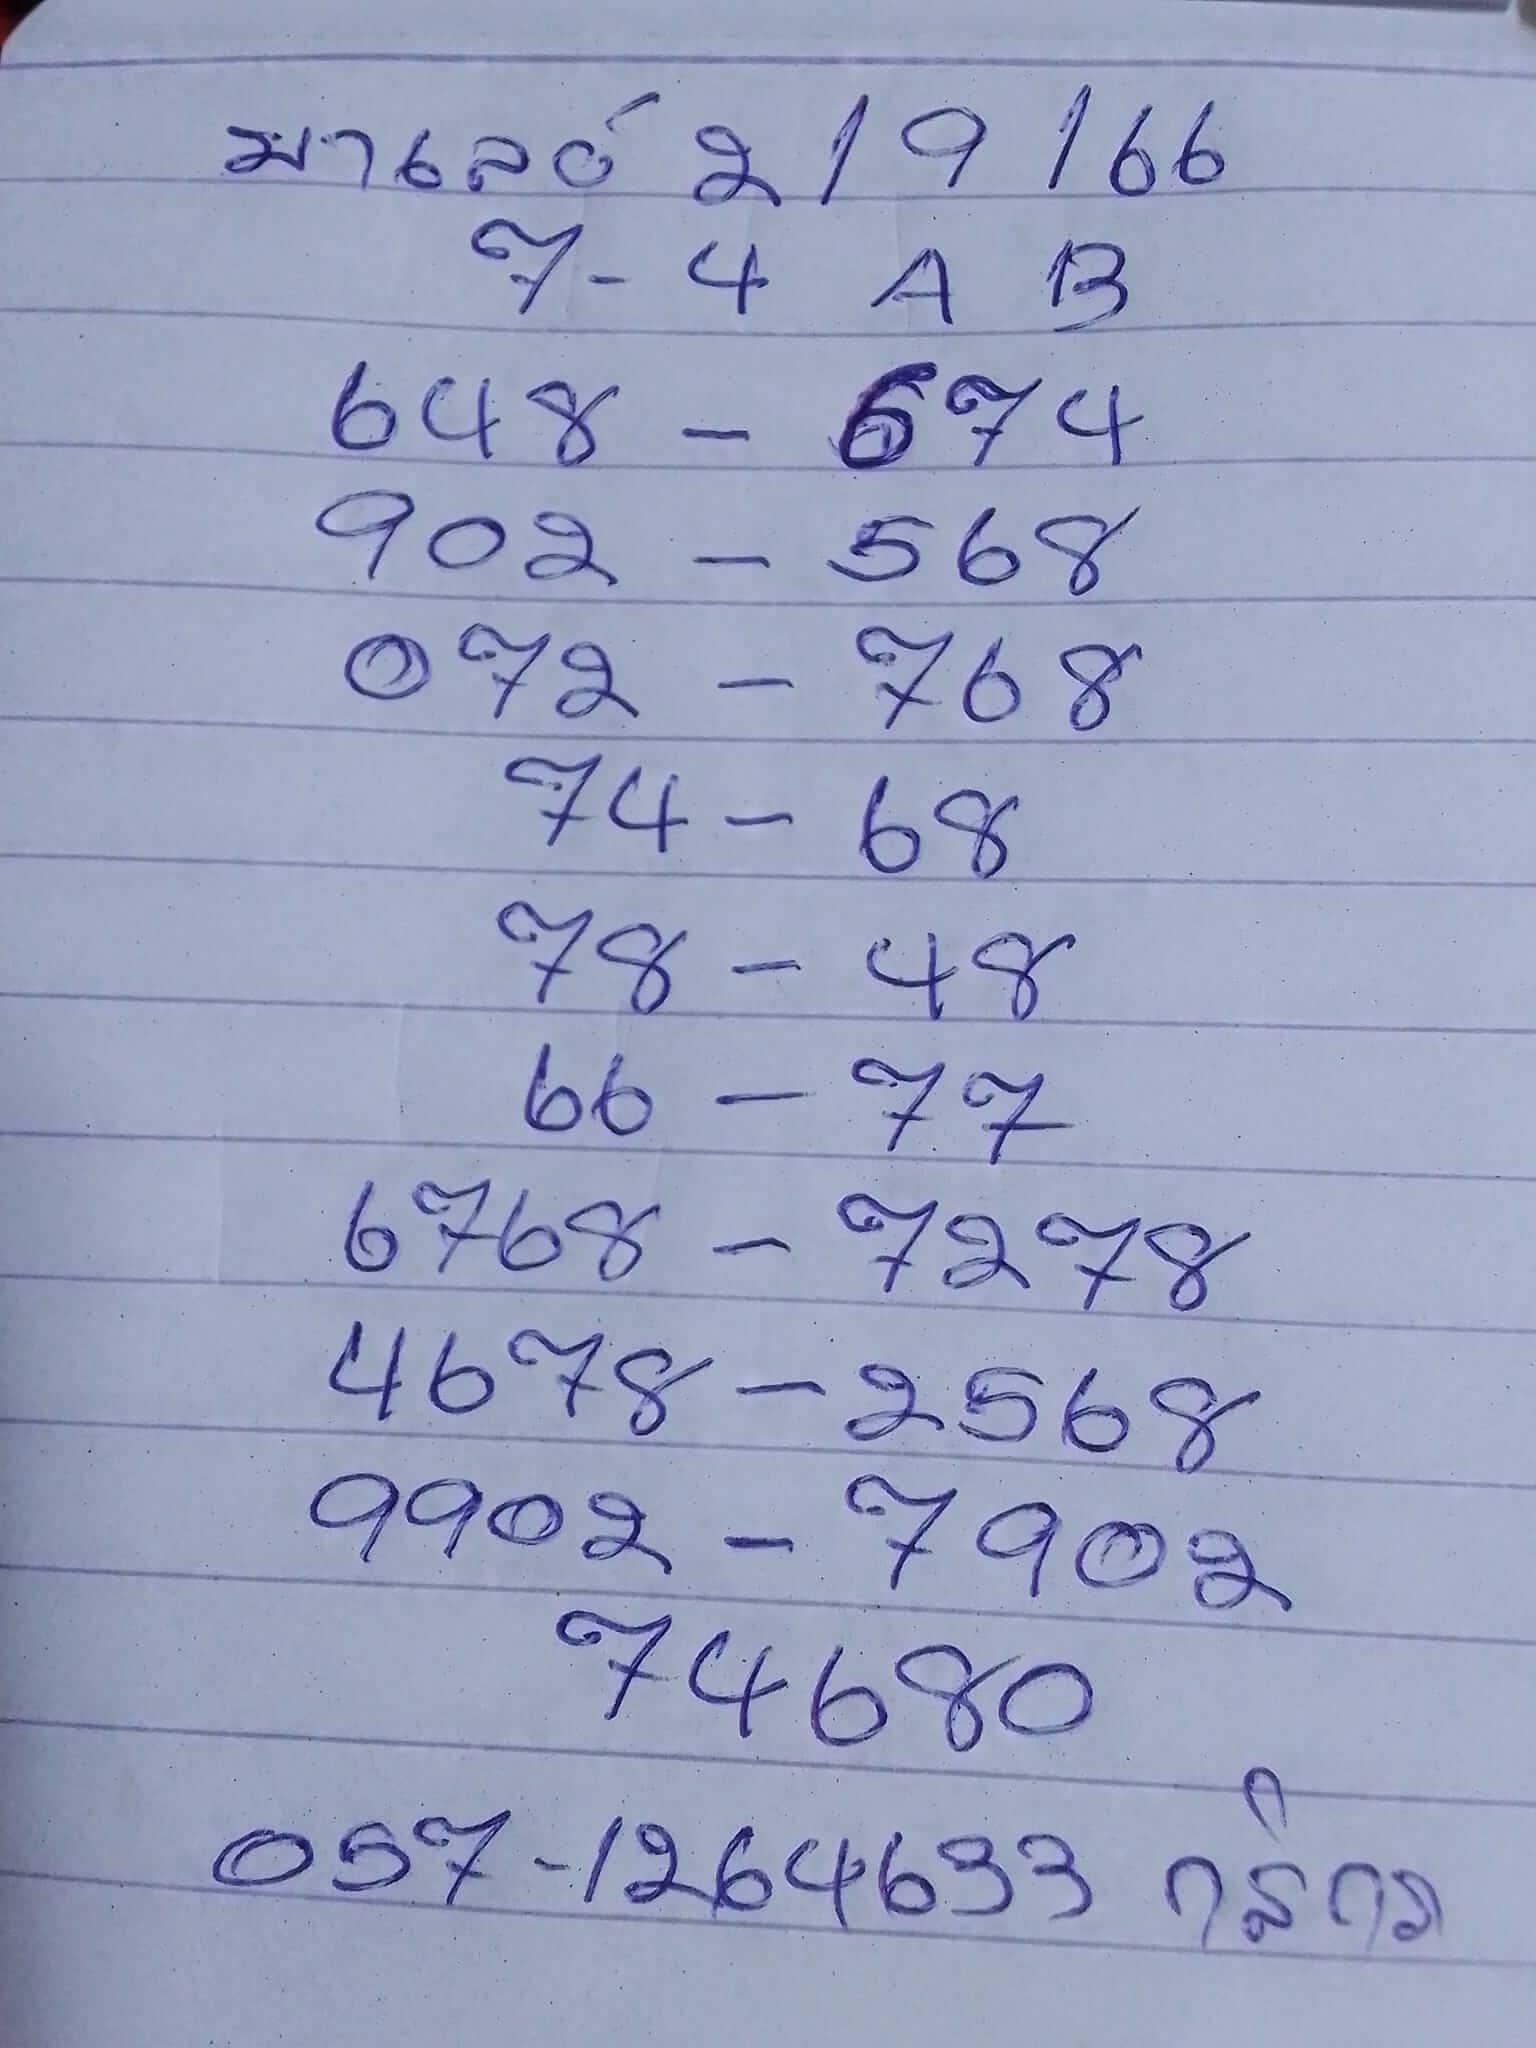 มาเลย์ 2/9/66
7-4 A B
648 - 674
902 - 568
072 - 768
74 - 68
78 - 48
66 - 77
6768 - 7278
4678 - 2568
9902 - 7902
74680
057-1264633 กสิกร